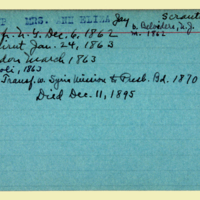 MRS. ANN ELIZA Jay Scranto
b. Belvidere, N.J.
m. 1862
N.Y. Dec. 6, 1862
irut Jan. 24, 1863
don March 1863
oli, 1863
Transf. w. Syria Mission to Presb. Bd. 1870
Died Dec. 11, 1895